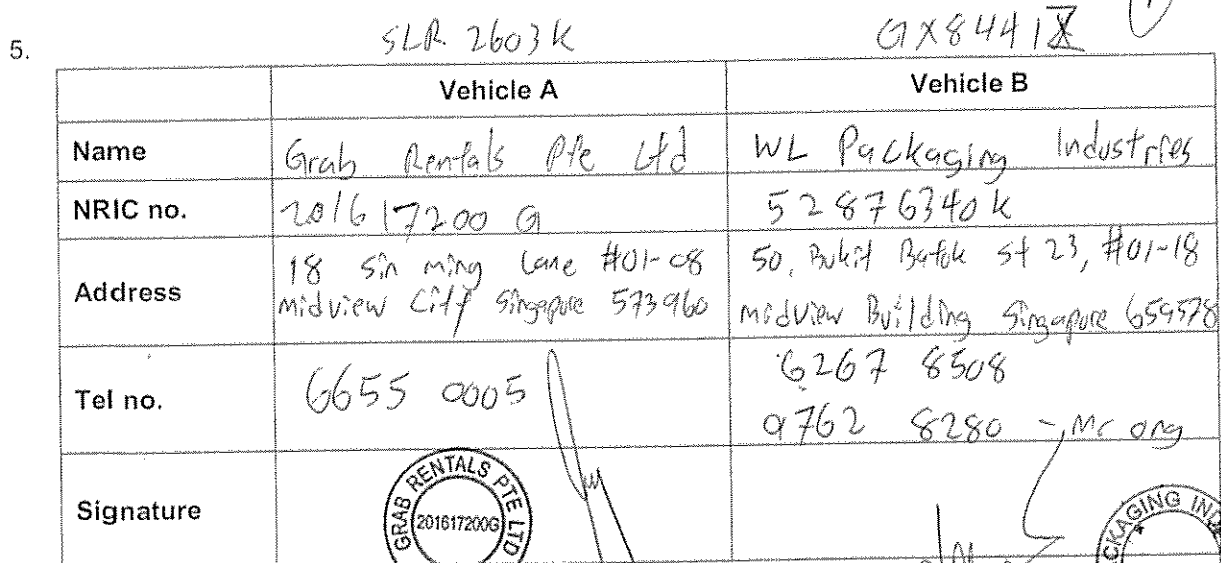 5.
SLR 2603K
GX8441
Vehicle A
Vehicle B
Name
Grab Rentals Pte Ltd
WL Packaging Industries
NRIC no.
201617200 G
52876340K
Address
18 Sin ming Lane #01-08
Midview City Singapore 573960
50, Bukit Batok St 23, #01-18
midview Building Singapore 659578
Tel no.
6655 0005
6267 8508
9762 8280 - Mr ong
Signature
GRAB RENTALS PTE LTD
201617200G
CKAGING IND